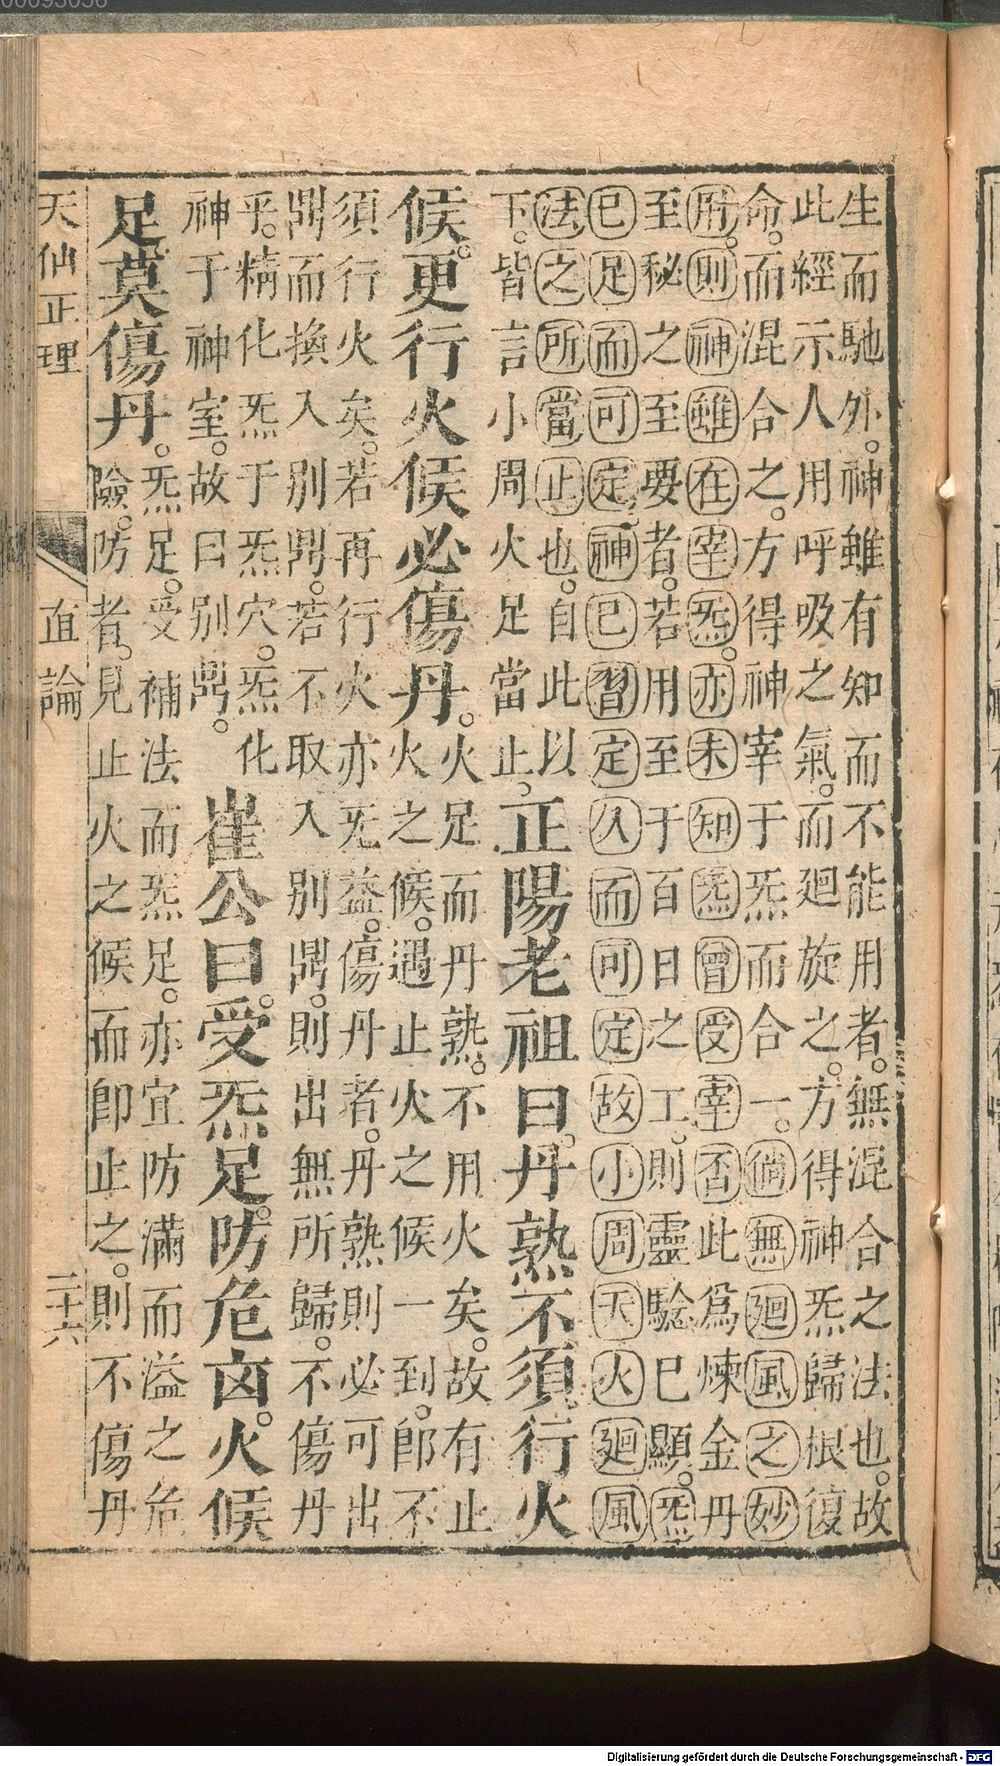 生而馳外。神雖有知而不能用者。無混合之法也。故
此經示人用呼吸之氣。而廻旋之。方得神炁歸根復
命。而混合之。方得神宰于炁而合一。倘無廻風之妙
用。則神雖在宰炁。亦未知炁曾受宰否此爲煉金丹
至秘之至要者。若用至于百日之工。則靈驗已顯。炁
已足而可定神已習定久而可定故小周天火廻風
法之所當止也。自此以
下。皆言小周火足當止。
正陽老祖曰。丹熟不須行火
候。更行火候必傷丹。
火足而丹熟。不用火矣。故有止
火之候。遇止火之候一到。卽不
須行火矣。若再行火亦旡益。傷丹者。丹熟則必可出
鼎而換入別鼎。若不取入別鼎。則出無所歸。不傷丹
乎。精化炁于炁穴。炁化
神于神室。故曰別鼎。
崔公曰。受炁足。防危凶。火候
足。莫傷丹。
炁足。受補法而炁足。亦宜防滿而溢之危
險。防者。見止火之候而卽止之。則不傷丹
天仙正理 直論 二十六
Digitalisierung gefördert durch die Deutsche Forschungsgemeinschaft - DFG